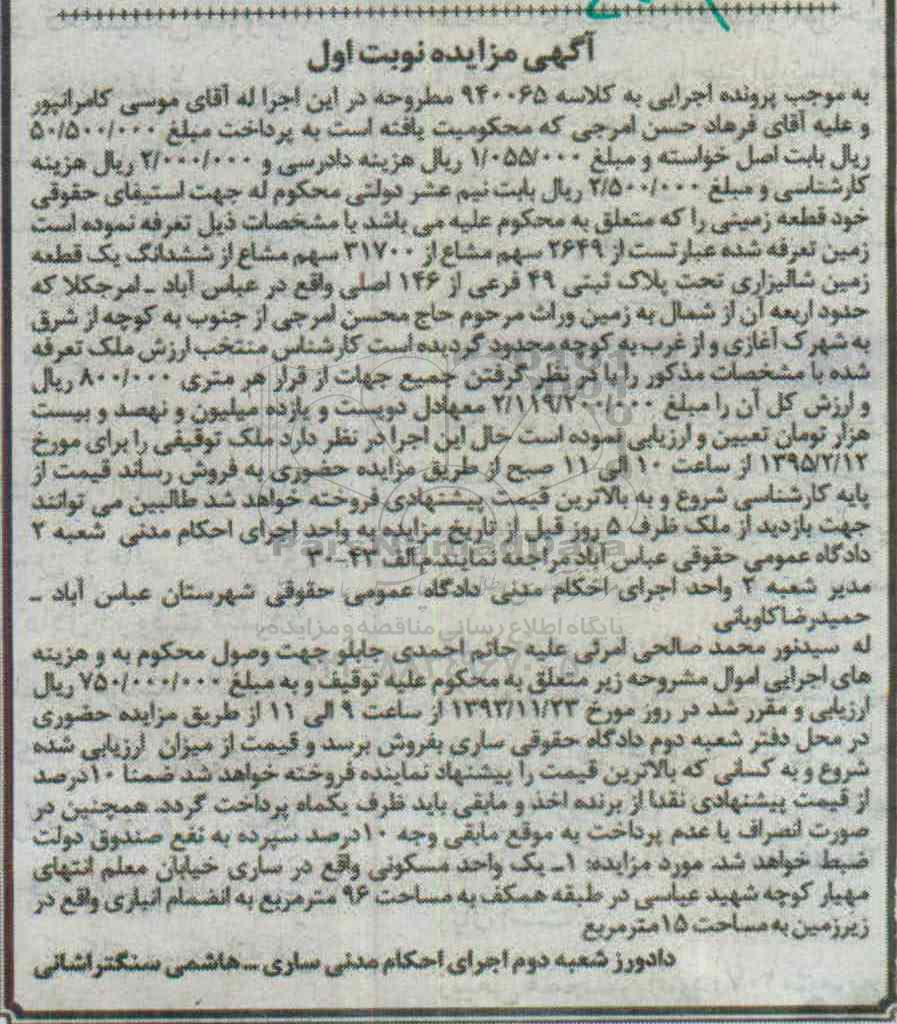 آگهی مزایده نوبت اول
به موجب پرونده اجرایی به کلاسه ۹۴۰۰۶۵ مطروحه در این اجرا له آقای موسی کامرانپور
و علیه آقای فرهاد حسن امرجی که محکومیت یافته است به پرداخت مبلغ ۵۰/۵۰۰/۰۰۰
ریال بابت اصل خواسته و مبلغ ۱/۰۵۵/۰۰۰ ریال هزینه دادرسی و ۲/۰۰۰/۰۰۰ ریال هزینه
کارشناسی و مبلغ ۲/۵۰۰/۰۰۰ ریال بابت نیم عشر دولتی محکوم له جهت استیفای حقوقی
خود قطعه زمینی را که متعلق به محکوم علیه می باشد با مشخصات ذیل تعرفه نموده است
زمین تعرفه شده عبارتست از ۲۶۴۹ سهم مشاع از ۳۱۷۰۰ سهم مشاع از ششدانگ یک قطعه
زمین شالیزاری تحت پلاک ثبتی ۴۹ فرعی از ۱۴۶ اصلی واقع در عباس آباد ـ امرجکلا که
حدود اربعه آن از شمال به زمین وراث مرحوم حاج محسن امرجی از جنوب به کوچه از شرق
به شهرک آغازی و از غرب به کوچه محدود گردیده است کارشناس منتخب ارزش ملک تعرفه
شده با مشخصات مذکور را با در نظر گرفتن جمیع جهات از قرار هر متری ۸۰۰/۰۰۰ ریال
و ارزش کل آن را مبلغ ۲/۱۱۹/۲۰۰/۰۰۰ معهادل دویست و یازده میلیون و نهصد و بیست
هزار تومان تعیین و ارزیابی نموده است حال این اجرا در نظر دارد ملک توقیفی را برای مورخ
۱۳۹۵/۲/۱۲ از ساعت ۱۰ الی ۱۱ صبح از طریق مزایده حضوری به فروش رساند قیمت از
پایه کارشناسی شروع و به بالاترین قیمت پیشنهادی فروخته خواهد شد طالبین می توانند
جهت بازدید از ملک ظرف ۵ روز قبل از تاریخ مزایده به واحد اجرای احکام مدنی شعبه ۲
دادگاه عمومی حقوقی عباس آباد مراجعه نمایند.م.الف ۴۳-۳۰
مدیر شعبه ۲ واحد اجرای احکام مدنی دادگاه عمومی حقوقی شهرستان عباس آباد ـ
حمیدرضا کاویانی
له سیدنور محمد صالحی امرئی علیه حاتم احمدی جابلو جهت وصول محکوم به و هزینه
های اجرایی اموال مشروحه زیر متعلق به محکوم علیه توقیف و به مبلغ ۷۵۰/۰۰۰/۰۰۰ ریال
ارزیابی و مقرر شد در روز مورخ ۱۳۹۳/۱۱/۲۳ از ساعت ۹ الی ۱۱ از طریق مزایده حضوری
در محل دفتر شعبه دوم دادگاه حقوقی ساری بفروش برسد و قیمت از میزان ارزیابی شده
شروع و به کسانی که بالاترین قیمت را پیشنهاد نماینده فروخته خواهد شد ضمنا ۱۰درصد
از قیمت پیشنهادی نقدا از برنده اخذ و مابقی باید ظرف یکماه پرداخت گردد. همچنین در
صورت انصراف یا عدم پرداخت به موقع مابقی وجه ۱۰درصد سپرده به نفع صندوق دولت
ضبط خواهد شد. مورد مزایده: ۱ـ یک واحد مسکونی واقع در ساری خیابان معلم انتهای
مهیار کوچه شهید عباسی در طبقه همکف به مساحت ۹۶ مترمربع به انضمام انباری واقع در
زیرزمین به مساحت ۱۵مترمربع
دادورز شعبه دوم اجرای احکام مدنی ساری ــ هاشمی سنگتراشانی
ParsNamadData
پایگاه اطلاع رسانی مناقصه و مزایده